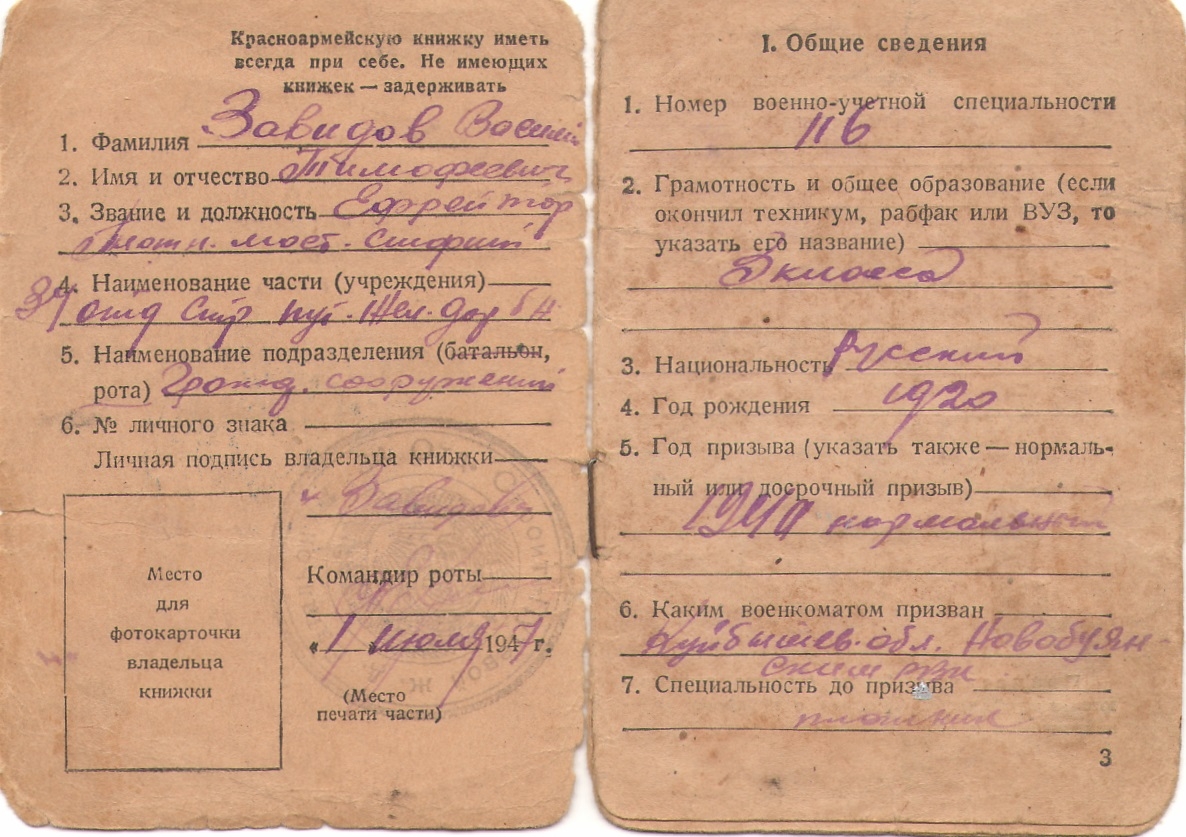 Красноармейскую книжку иметь
всегда при себе. Не имеющих
книжек — задерживать
1. Фамилия Завидов Василий
2. Имя и отчество Тимофеевич
3. Звание и должность Ефрейтор
Плотн. мост. старший
4. Наименование части (учреждения)
отд стр пут. Жел. дор бн
5. Наименование подразделения (батальон,
рота) Гражд. сооружений
6. № личного знака
Личная подпись владельца книжки
Завидов
Место
для
фотокарточки
владельца
книжки
Командир роты
„1" июля 1947 г.
(Место
печати части)
I. Общие сведения
1. Номер военно-учетной специальности
116
2. Грамотность и общее образование (если
окончил техникум, рабфак или ВУЗ, то
указать его название)
3 класса
3. Национальность русский
4. Год рождения 1920
5. Год призыва (указать также — нормаль-
ный или досрочный призыв)
нормальный
6. Каким военкоматом призван
Куйбышев. обл. Новобуян-
ским рвк
7. Специальность до призыва
плотник
3